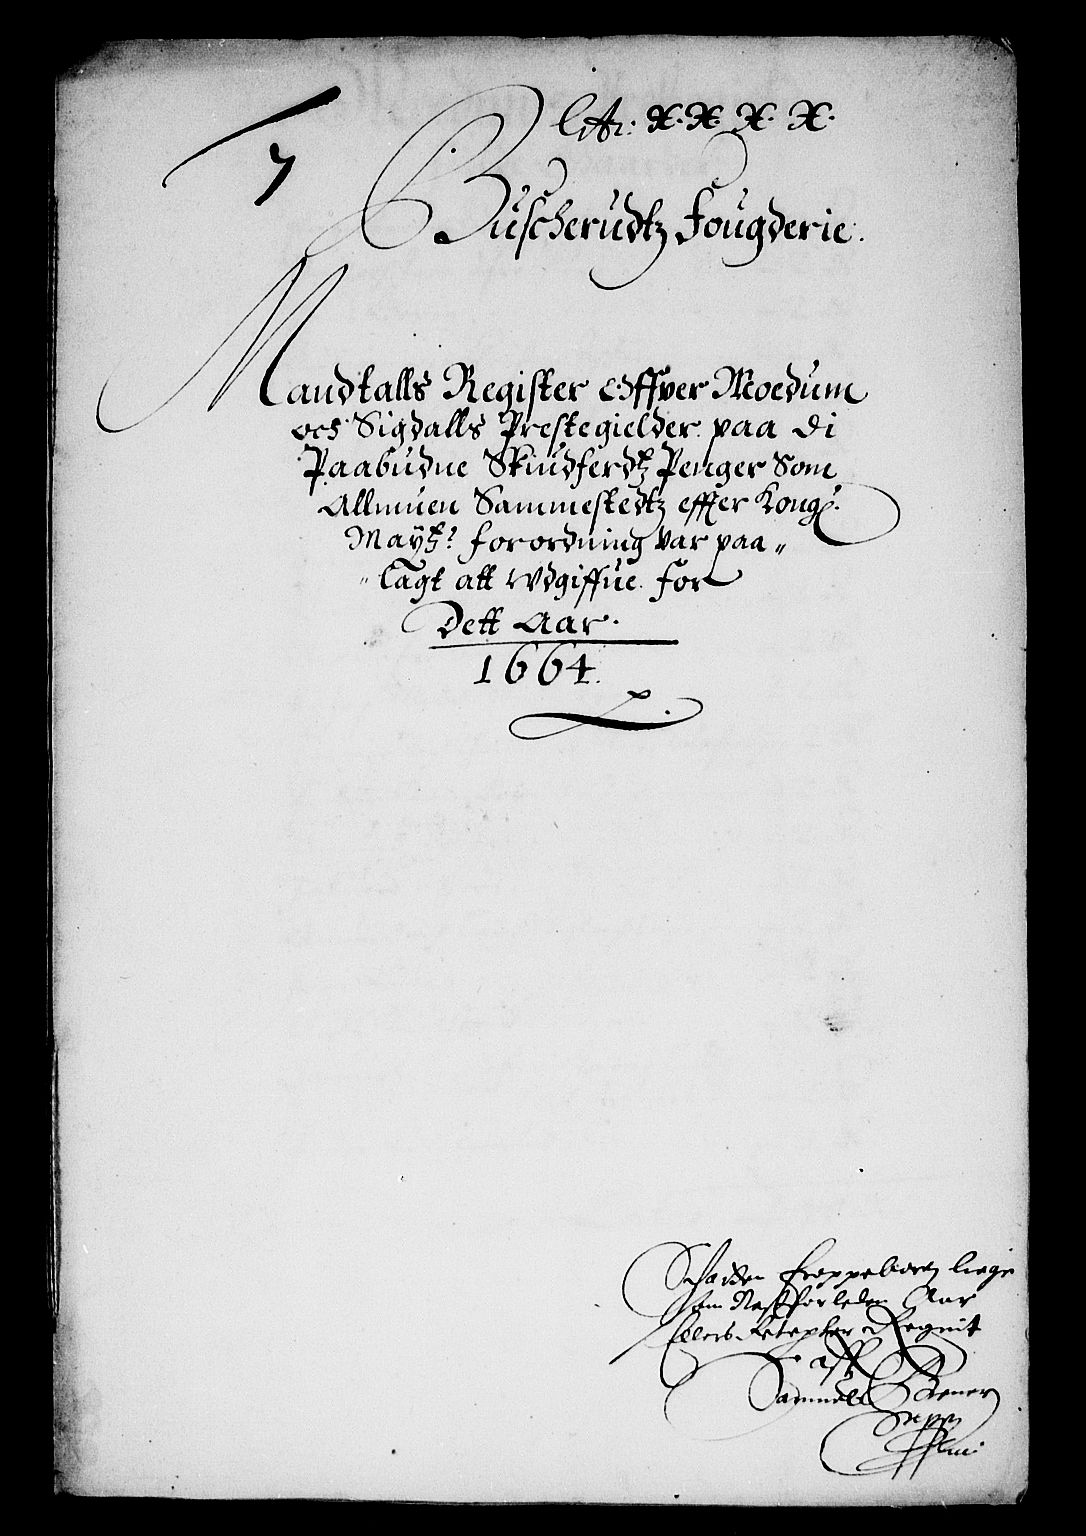 7
Litr: X. X. X. X.
Buscherudtz Fougderie.
Mandtalls Register offver Moedum
och Sigdalls Prestegielder paa di
Paabudne Skiudferdtz Penger Som
Allmuen Sammestedtz effter Kongl:
Maytz: forordning var paa„
„lagt att wdgiffue for
Dett Aar.
1664.
liege
som Nest forleden Aar
Regnit
aff
Samuell